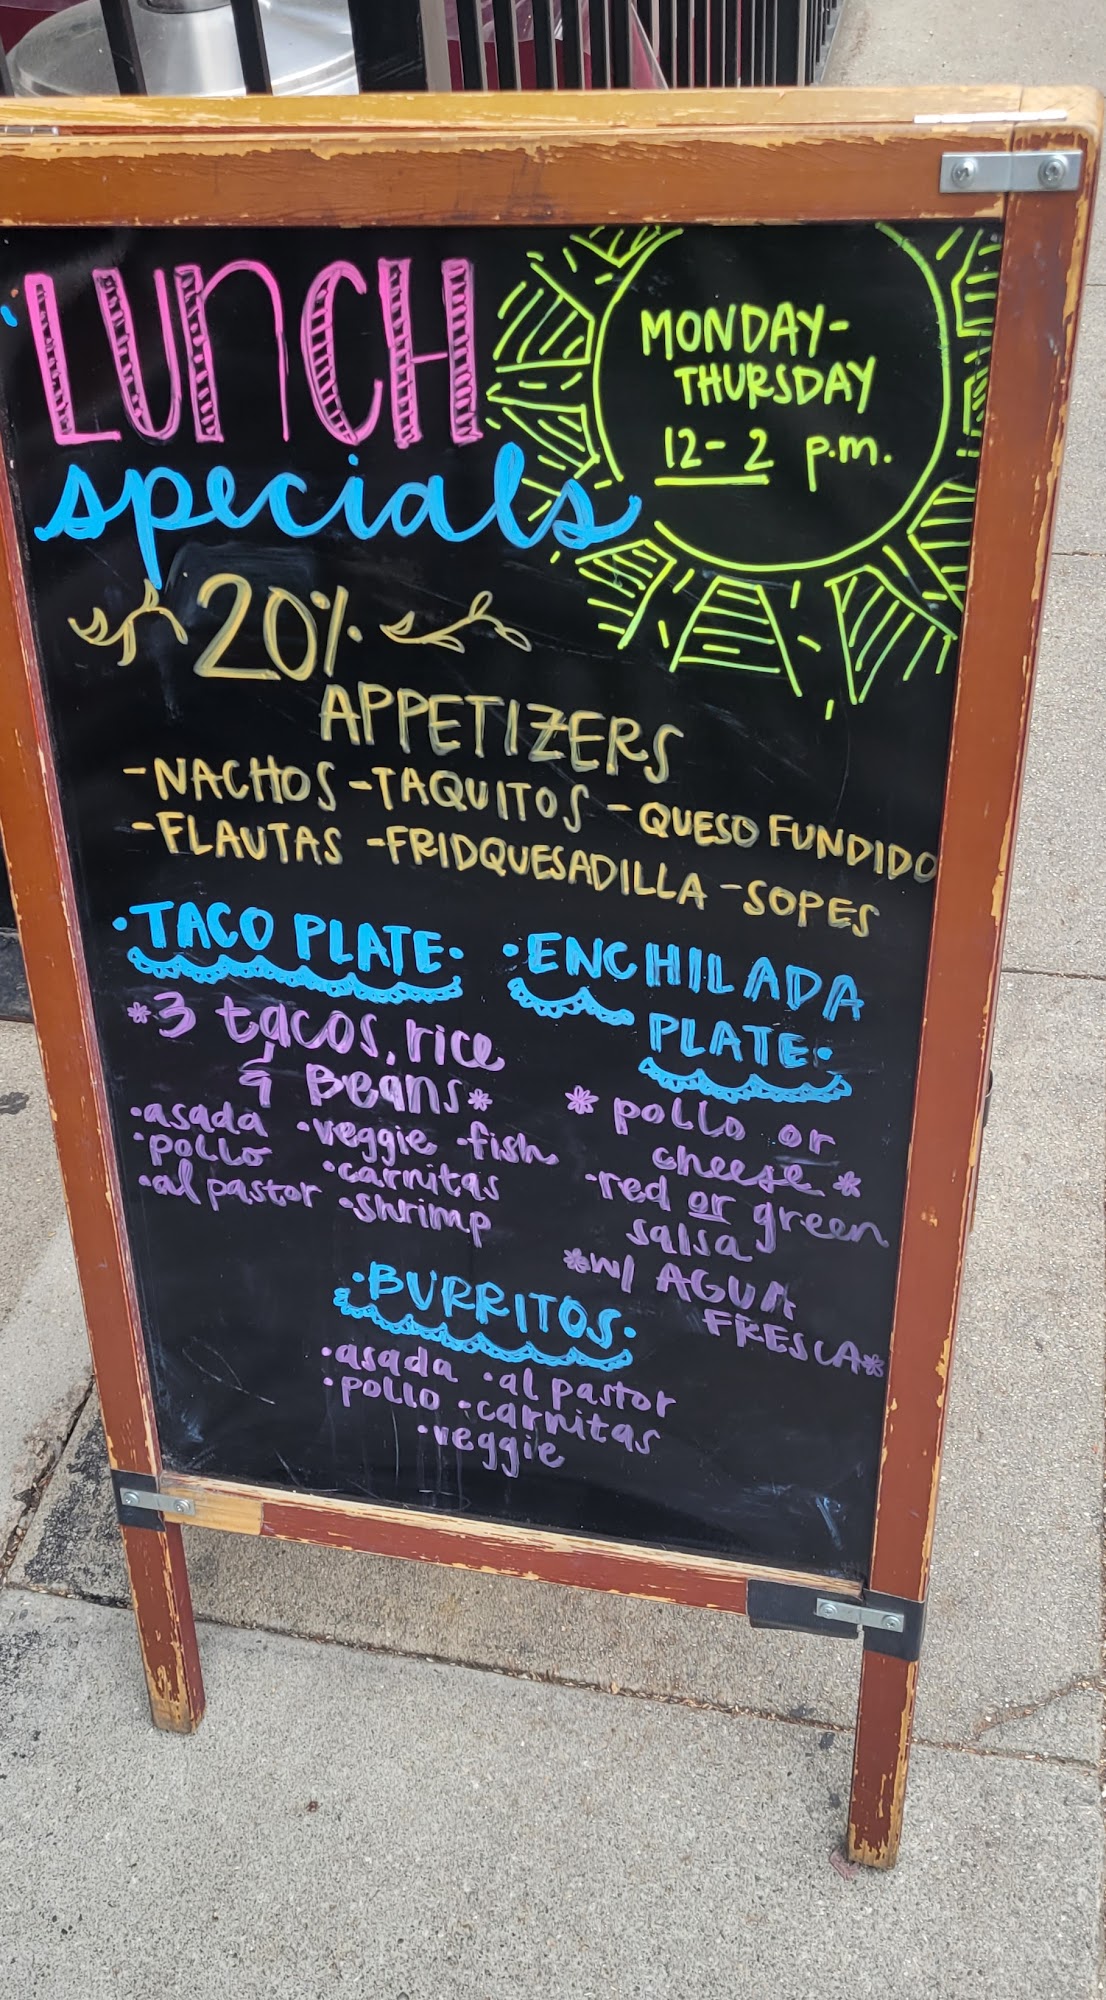 LUnCH
specials
MONDAY-
THURSDAY
12-2 p.m.
20%
APPETIZERS
-NACHOS -TAQUITOS -QUESO FUNDIDO
-FLAUTAS -FRIDQUESADILLA -SOPES
•TACO PLATE•
*3 tacos, rice
& Beans*
•asada •veggie •fish
•pollo •carnitas
•al pastor •shrimp
•ENCHILADA
PLATE•
* pollo or
cheese *
•red or green
salsa
*w/ AGUA
FRESCA*
•BURRITOS•
•asada •al pastor
•pollo •carnitas
•veggie